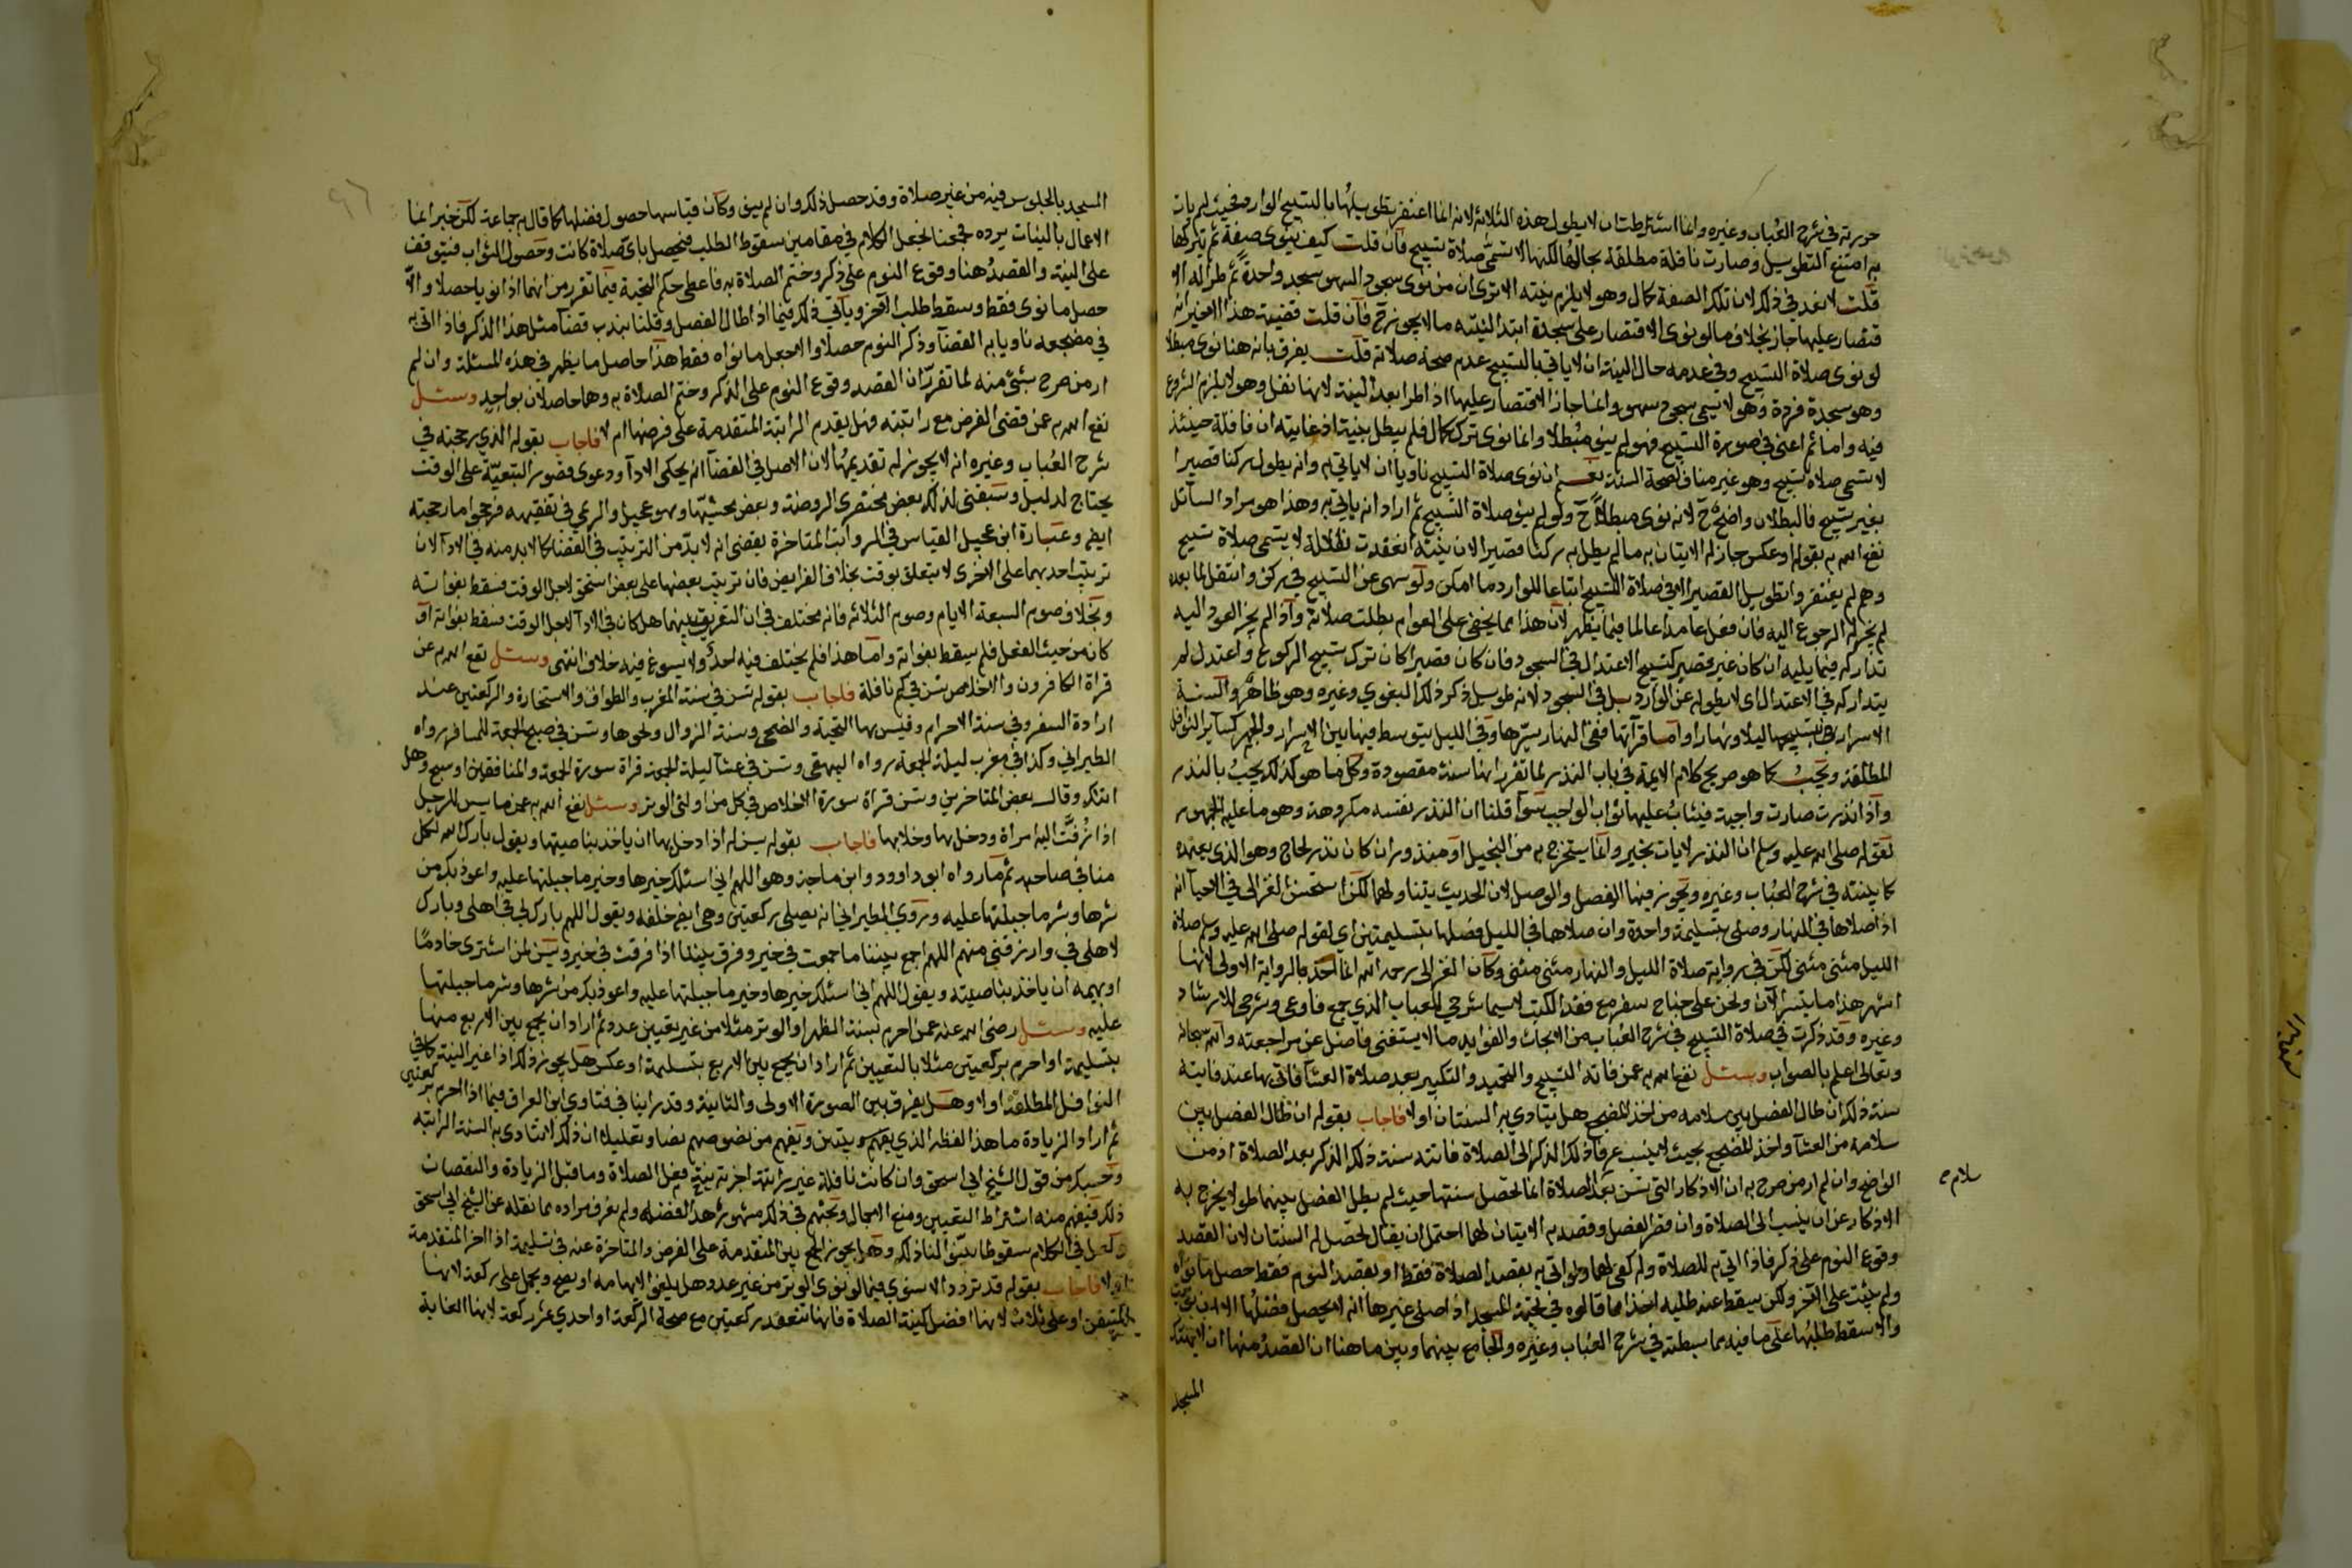 حررته في شرح العباب وغيره وانما اشترطت ان لا يطول هذه الثلاثة لانه انما اغتفر تطويلها بالتسبيح الوارد فحيث لم يات
به امتنع التطويل وصارت نافلة مطلقة بحالها لكنها لا تسمى صلاة تسبيح فان قلت كيف ينوى صفة ثم يتركها
قلت لا بعد في ذلك لان تلك الصفة كمال وهو لا يلزم بنيته الا ترى ان من نوى سجود السهو سجد واحدة ثم طرا له الا
قتصار عليها جاز بخلاف ما لو نوى الاقتصار على سجدة ابتدا لنيته ما لا يجوز ح فان قلت قضية هذا الاخير انه
لو نوى صلاة التسبيح وفي عدمه حال النية ان لا ياتي بالتسبيح عدم صحة صلاته قلت يفرق بانه هنا نوى مبطلا
وهو سجدة فردة وهو لا تسمى سجود سهو وانما جاز الاقتصار عليها اذا طرا بعد النية لانها نفل وهو لا يلزم بالشروع
فيه واما ثم اعني في صورة التسبيح فهو لم ينو مبطلا وانما نوى ترك كمال فلم يبطل بنية اذ غايته ان نافلة حينئذ
لا تسمى صلاة تسبيح وهو غير مناف لصحة السنة نعم ان نوى صلاة التسبيح ناويا ان لا ياتي به وانه يطول ركنا قصيرا
بغير تسبيح فالبطلان واضح ح لانه نوى مبطلا ح ولو لم ينو صلاة التسبيح ثم اراد انه ياتي به وهذا هو مراد السائل
نفع الله به بقوله او عكس جاز له الاتيان به ما لم يطل به ركنا قصيرا لان نيته انعقدت نفلا لا يسمى صلاة تسبيح
وهم لم يغتفروا تطويل القصير الا في صلاة التسبيح اتباعا للوارد ما امكن ولو سهى عن التسبيح في ركن وانتقل لما بعده
لم يجز له الرجوع اليه فان فعل عامدا عالما فيما يظهر لان هذا مما يخفى على العوام بطلت صلاته واذا لم يجز العود اليه
تداركه فيما يليه ان كان غير قصير كتسبيح الاعتدال في السجود فان كان قصيرا كان ترك تسبيح الركوع واعتدل لم
يتداركه في الاعتدال اي لا يطوله عن الوارد بل في السجود لانه طويل ذكر ذلك البغوي وغيره وهو ظاهر والسنة
الاسرار في تسبيحها ليلا ونهارا واما قرآتها ففي النهار يسرها وفي الليل يتوسط فيها بين الاسرار والجهر كساير النوافل
المطلقة ويجب كما هو صريح كلام الايمة في باب النذر لما تقرر انها سنة مقصودة وكل ما هو كذلك يجب بالنذر
واذا نذرت صارت واجبة فيثاب عليها ثواب الواجب سوآ قلنا ان النذر نفسه مكروهة وهو ما عليه الجمهور
لقوله صلى الله عليه وسلم ان النذر لا يات بخير وانما يستخرج به من البخيل او مندور ان كان نذر لجاج وهو الذي يعتمده
كما بينته في شرح العباب وغيره ويجوز فيها الفصل والوصل لان الحديث يتناولهما لكن استحسن الغزالى في الاحيآ انه
اذا صلاها في النهار وصلى بتسليمة واحدة وان صلاها في الليل فصلها بتسليمتين اي لقوله صلى الله عليه وسلم صلاة
الليل مثنى مثنى لكن في رواية صلاة الليل والنهار مثنى مثنى وكان الغزالى رحمه الله انما اخذ بالرواية الاولى لانها
اشهر هذا ما يتسر الآن ونحن على جناح سفر مع فقد الكتب لاسيما شرحي للعباب الذي جمع فاوعى وشرحي للارشاد
وغيره وقد ذكرت في صلاة التسبيح في شرح العباب من الابحاث والفوايد ما لا يستغني فاضل عن مراجعته والله سبحانه
وتعالى اعلم بالصواب وسئل نفع الله به عمن فاته التسبيح والتحميد والتكبير بعد صلاة العشآ فاتى بها عند فايته
سنة ذلك ان طال الفصل بين سلامه من اخذ المضجع هل يتادي به السنتان اولا فاجاب بقوله ان طال الفصل بين
سلامه من العشآ واخذ المضجع بحيث لا ينسب عرفا ذلك الذكر الى الصلاة فاتته سنة ذلك الذكر بعد الصلاة اذ من
سلام ح
الواضح وان لم ار من صرح به ان الاذكار التي تسن بعد الصلاة انما تحصل سنتها حيث لم يطل الفصل بينهما طولا يخرج به
الاذكار عن ان ينسب الى الصلاة وان قصر الفصل وقصد به الاتيان لهما احتمل ان يقال تحصل له السنتان لان القصد
وقوع النوم على ذكر فاذا اتى به للصلاة ولم كفى لهما ولو اتى به بقصد الصلاة فقط او بقصد النوم فقط حصل ما نواه
ولم يثبت على الآخر ولكن يسقط عنه طلبه اخذا مما قالوه في تحية المسجد اذا صلى غيرها انه لا يحصل فضلها الا ان نويت
والا سقط طلبها على ما فيه مما بسطته في شرح العباب وغيره والجامع بينهما وبين ما هنا ان القصد منها ان لا ينتهك
المسجد
المسجد بالجلوس فيه من غير صلاة وقد حصل ذلك وان لم ينو وكان قياسها حصول فضلها كما قال به جماعة لكن خبر انما
الاعمال بالنيات يرده فجمعنا بجعل الكلام في مقامين سقوط الطلب فيحصل باي صلاة كانت وحصول الثواب فيتوقف
على النية والقصد هنا وقوع النوم على ذكر وختم الصلاة به فاعطى حكم التحية فيما تقرر من انهما اذا نويا حصلا والا
حصل ما نوى فقط وسقط طلب الآخر وياتي ذلك فيما اذا طال الفصل وقلنا بندب قضآ مثل هذا الذكر فاذا اتى به
في مضجعه ناويا به القضآ وذكر النوم حصلا والا حصل ما نواه فقط هذا حاصل ما يظهر في هذه المسئلة وان لم
ار من صرح بشئ منه لما تقرر ان القصد وقوع النوم على الذكر وختم الصلاة به وهما حاصلان بواحد وسئل
نفع الله به عمن قضى الفرض مع راتبته فهل يقدم الراتبة المتقدمة على فرضها ام لا فاجاب بقوله الذي رجحته في
شرح العباب وغيره انه لا يجوز له تقديمها لان الاصل في القضآ انه يحكى الادآ ودعوى قصور التبعية على الوقت
يحتاج لدليل وسبقني لذلك بعض مختصرى الروضة وبعض محشيها وهو عجيل والريمي في تفقيهه فرجحوا ما رجحته
ايضا وعبارة ابن عجيل القياس في الرواتب المتاخرة يقضى انه لا بد من الترتيب في القضا كما لابد منه في الادآ لان
ترتيب احديهما على الاخرى لا يتعلق بوقت بخلاف الفرايض فان ترتيب بعضها على بعض استحق لاجل الوقت فسقط بفواته
وبخلاف صوم السبعة الايام وصوم الثلاثة فانه مختلف في ان التفريق بينهما هل كان في الادآ لاجل الوقت فسقط بفواته او
كان من حيث الفعل فلم يسقط بفواته واما هذا فلم يختلف فيه احد ولا يسوغ فيه خلاف انتهى وسئل نفع الله به عن
قراة الكافرون والاخلاص تسن في كم نافلة فاجاب بقوله تسن في سنة المغرب والطواف والاستخارة والركعتين عند
ارادة السفر وفي سنة الاحرام وقيس بها التحية والضحى وسنة الزوال ونحوها وتسن في صبح الجمعة للمسافر رواه
الطبراني وكذا في مغرب ليلة الجمعة رواه البيهقي وتسن في عشآ ليلة الجمعة قراة سورة الجمعة والمنافقين او سبح وهل
اتتك وقال بعض المتاخرين وتسن قراة سورة الاخلاص في كل من اولتى الوتر وسئل نفع الله به عن ما يسن للرجل
اذا زفت اليه امراة ودخل بها وخلا بها فاجاب بقوله يسن له اذا دخل بها ان ياخذ بناصيتها ويقول بارك الله لكل
منا في صاحبه ثم ما رواه ابو داوود وابن ماجة وهو اللهم اني اسئلك خيرها وخير ما جبلتها عليه واعوذ بك من
شرها وشر ما جبلتها عليه وروى الطبراني انه يصلي ركعتين وهي ايضا خلفه ويقول اللهم بارك لي في اهلي وبارك
لاهلي في وارزقني منهم اللهم اجمع بيننا ما جمعت في خير وفرق بيننا اذا فرقت في خير ويسن لمن اشترى خادما
او بهيمة ان ياخذ بناصيته ويقول اللهم اني اسئلك خيرها وخير ما جبلتها عليه واعوذ بك من شرها وشر ما جبلتها
عليه وسئل رضى الله عنه عمن احرم بسنة الظهر او الوتر مثلا من غير تعيين عدد ثم اراد ان يجمع بين الاربع منها
بتسليمة او احرم بركعتين مثلا بالتعيين ثم اراد ان يجمع بين الاربع بتسليمة او عكس هل يجوز ذلك اذا غير النية كما في
النوافل المطلقة اولا وهل يفرق بين الصورة الاولى والثانية وقد راينا في فتاوي ابن العراق فيما اذا احرم بركعتين
ثم اراد الزيادة ما هذا لفظه الذي يفهم ويفهم من نصوصهم نصا وتعليلا ان ذلك لا تتادى به السنة الراتبة
وحسبك من قول الشيخ ابي اسحق وان كانت نافلة غير راتبة اجزته نية فعل الصلاة وما قبل الزيادة والنقصان
ذلك فيفهم منه اشتراط التعيين ومنع الاجمال وبحثهم في ذلك مشهور هذا لفظه ولم يعرف مراده مما نقله عن الشيخ ابي اسحق
ولعل في الكلام سقوطا بينوا لنا ذلك وهل يجوز الجمع بين المتقدمة على الفرض والمتاخرة عنه في تسليمة اذا اخر المتقدمة
اولا فاجاب بقوله قد تردد الاسنوي فيما لو نوى الوتر من غير عدد وهل يلغو لابهامه او يصح ويحمل على ركعة لانها
المتيقن او على ثلاث لانها افضل كنية الصلاة فانها تنعقد ركعتين مع صحة الركعة او احدي عشر ركعة لانها الغاية